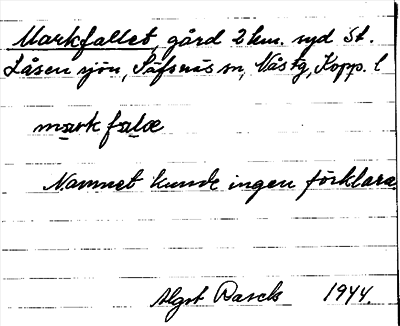 Markfallet, gård 2 km. syd St.
Låsen sjön, Säfsnäs sn, Nås tg, Kopp. l
markfalæ
Namnet kunde ingen förklara.
Algot 1944.